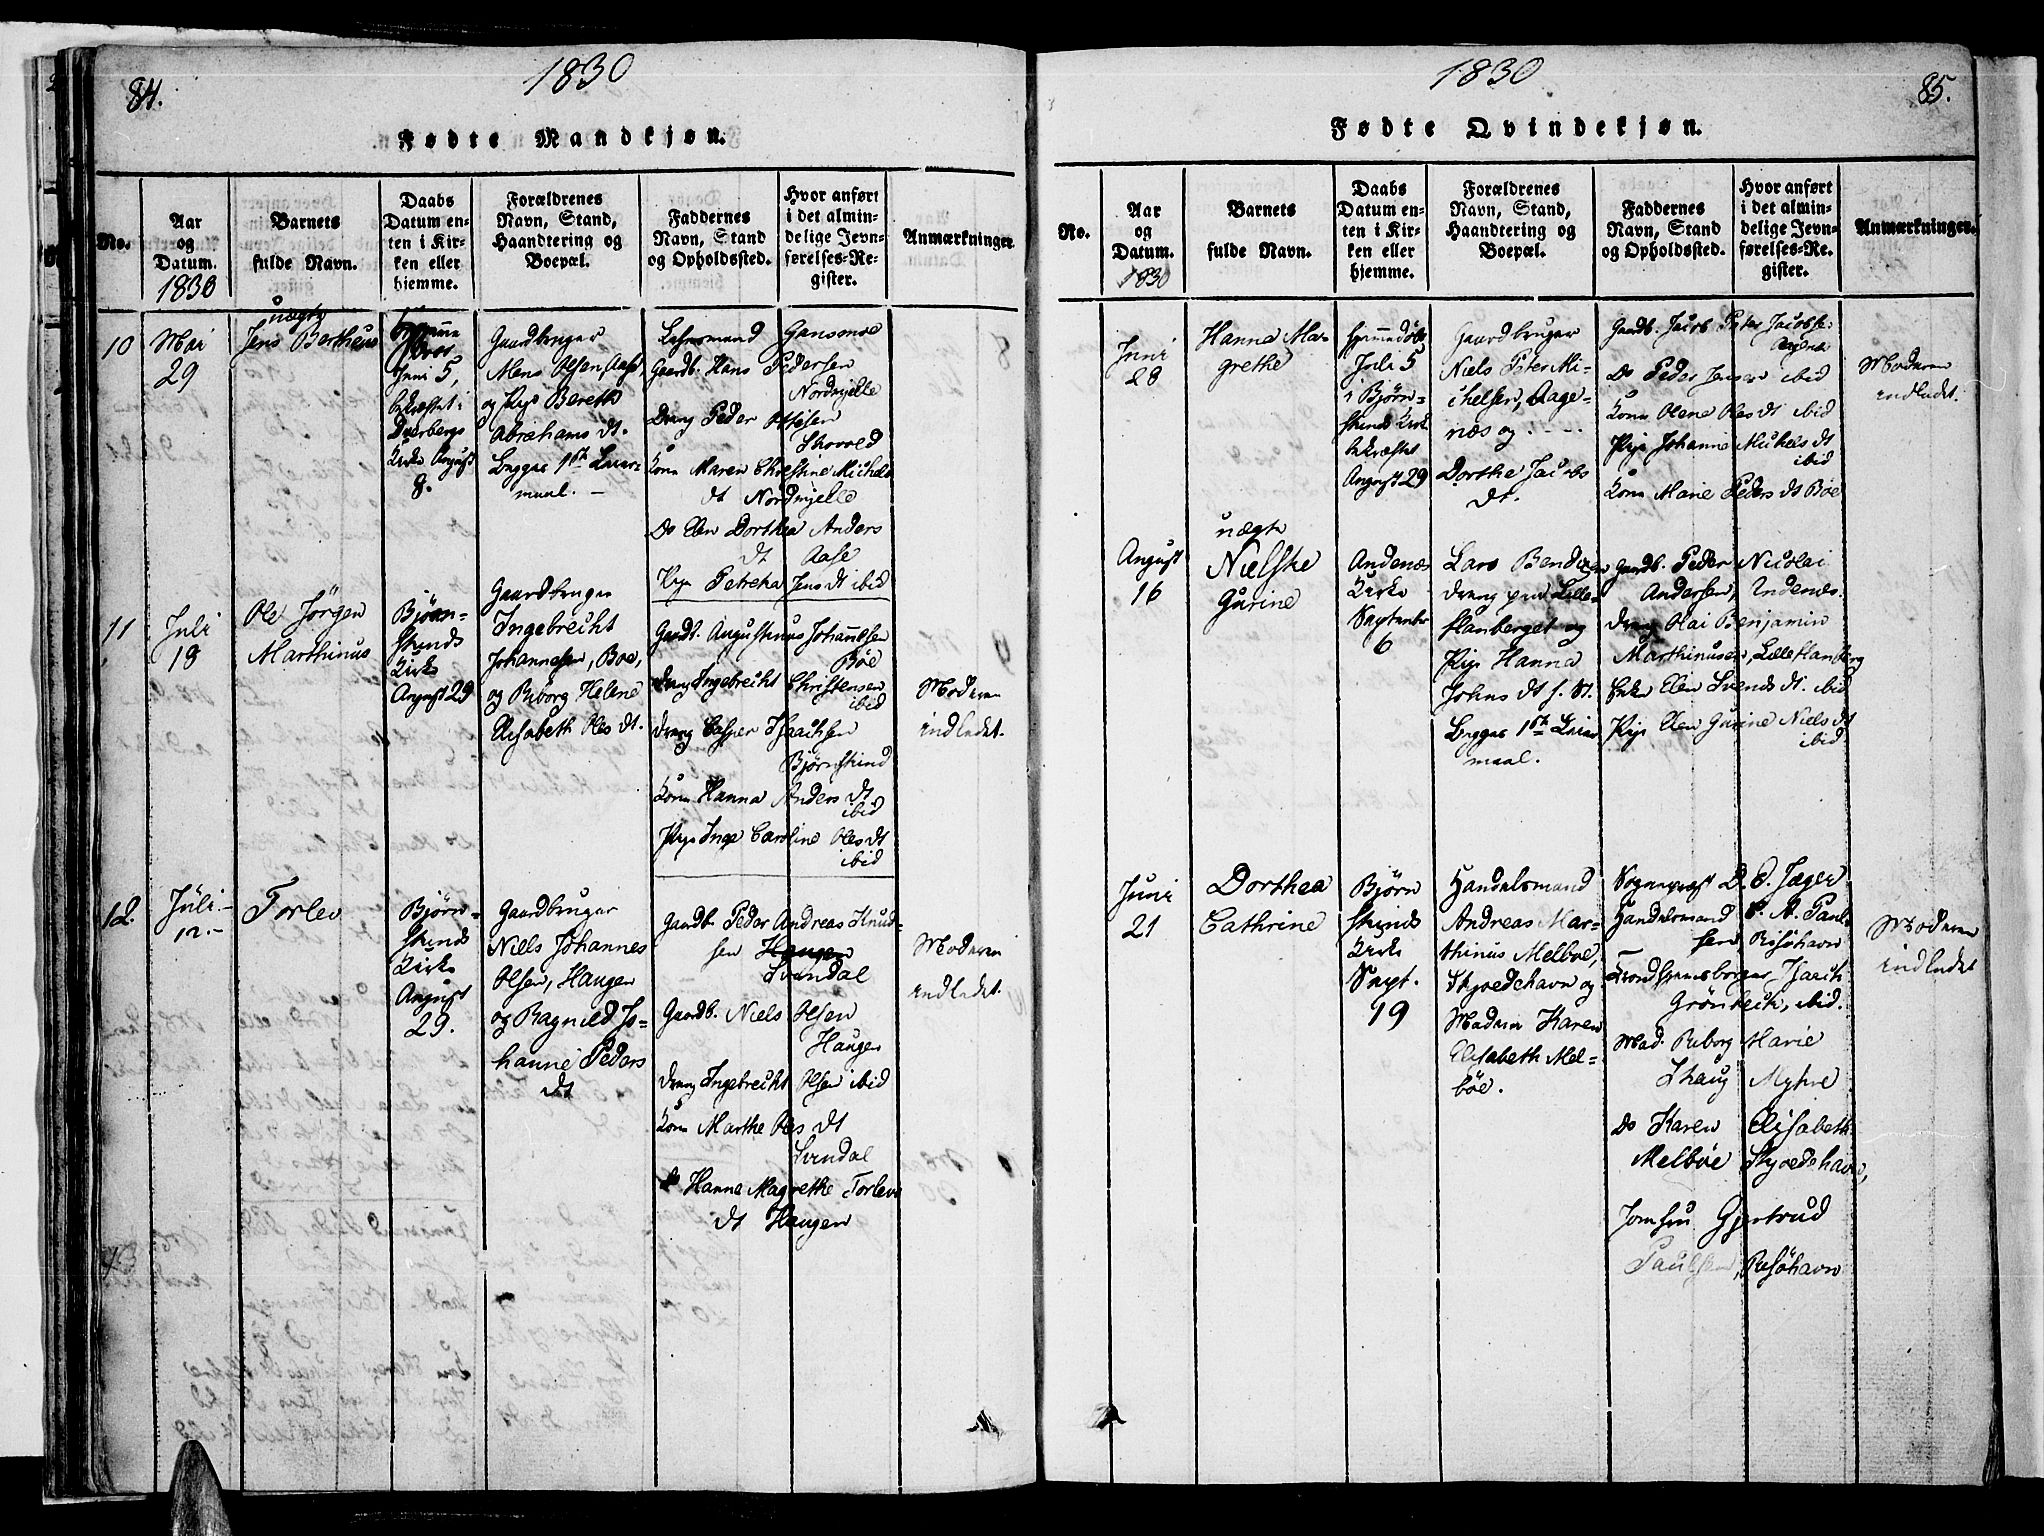 84.
1830
Fødte Mandkjøn.
No.
Aar
og
Datum.
1830
Barnets
fulde Navn.
Daabs
Datum en-
ten i Kir-
ken eller
hjemme.
Forældrenes
Navn, Stand,
Haandtering og
Boepæl.
Faddernes
Navn, Stand
og Opholdssted.
Hvor anført
i det almin-
delige Jevn-
førelses-Re-
gister.
Anmærkninger.
10
Mai
29
uægte
Jens Bertheus
Juni 5,
bekræftet i
Dverbergs
Kirke August
8.
Gaardbruger
Mons Olsen, Aase,
og Pige Bereth
Abrahams dt.
Begges 1ste Leier-
maal. –
Lehnsmand
Gaardb. Hans Pedersen
Nordmjelle
Dreng Peder Ottesen
Skovold
Kone Maren Christine Michels
dt Nordmjelle
Do Elen Dorthea Anders
dt Aase
Pige Petrcha Jens dt ibid
11
Juli
18
Ole Jörgen
Marthinus
Bjørn-
skinds
Kirke
August 29
Gaardbruger
Ingebrecht
Johannesen, Boe,
og Riborg Helene
Elisabeth Ols dt.
Gaardb. Augustinus Johannesen
Böe
Dreng Ingebrecht Christensen
ibid
Dreng Casper Isaachsen
Bjørnskind
Kone Hanna Anders dt
ibid
Pige Inge Caroline Ols dt
ibid
Moderen
indledet.
12.
Juli.–
12.–
Torlev
Bjørn-
skinds
Kirke
August
29.
Gaardbruger
Niels Johannes
Olsen, Haugen
og Ragnild Jo-
hanne Peders
dt
Gaardb. Peder Andreas Knud-
sen Haugen
Svindal
Gaardb. Niels Olsen
Haugen
Dreng Ingebrecht Olsen ibid
Kone Marthe Ols dt
Svindal
Do Hanna Magrethe Torlevs
dt Haugen
Moderen
indledet.
85.
1830
Fødte Qvindekjøn.
No.
Aar
og
Datum.
1830
Barnets
fulde Navn.
Daabs
Datum en-
ten i Kir-
ken eller
hjemme.
Forældrenes
Navn, Stand,
Haandtering og
Boepæl.
Faddernes
Navn, Stand
og Opholdssted.
Hvor anført
i det almin-
delige Jevn-
førelses-Re-
gister.
Anmærkninger.
Juni
28
Hanna Ma-
grethe
Hjemmedöbt
Juli 5
i Bjørn-
skinds Kirk
bekræftet
August 29
Gaardbruger
Niels Peter Mi-
chelsen, Aage-
næs og
Dorthe Jacobs
dt.
Gaardb. Jacob Peter Jacobse
Do Peder Jensen ibid
Kone Olene Ols dt ibid
Pige Johanne Mickels dt
ibid
Kone Marie Peders dt Böe
Moderen
indledet.
August
16
uægte
Nielske
Gurine
Andenæs
Kirke
September
6
Lars Bendixen
Dreng paa Lille-
flanberget og
Pige Hanna
Johns dt s. St.
Begges 1ste Leier
maal.
Gaardb. Peder Nicolai
Andersen, Andenes.
Dreng Olai Benjamin
Marthinusen, Lilleflanberg
Enke Elen Svends dt. ibid
Pige Elen Gurine Niels dt
ibid
Juni
21
Dorthea
Cathrine
Bjørn
skinds
Kirke
Sept.
19
Handelsmand
Andreas Mar-
thinus Melboe,
Skjoldehavn og
Madam Karen
Elisabeth Mel-
böe.
Sognepræst D. C. Jæger
Handelsmand P. A. Paul-
sen Risöhavn
Trondhjemsborger Isaach
Grönbech, ibid.
Mad. Riborg Marie
Schaug Myhre
Do Karen Elisabeth
Melböe Skjoldehavn,
Jomfru Gjertrud
Paulsen, Risöhavn
Moderen
indledet